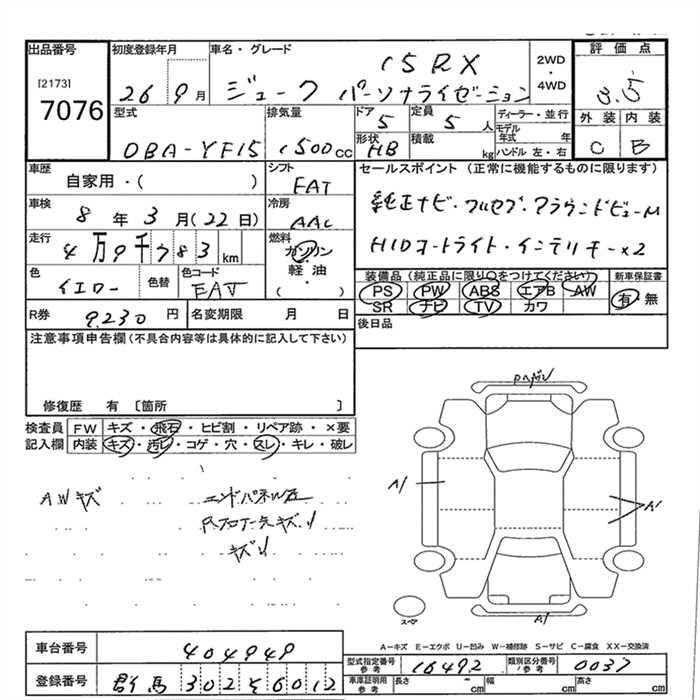 出品番号
[2173]
7076
初度登録年月
26年 9月
車名・グレード
15RX
ジューク パーソナライゼーション
2WD
・
4WD
評価点
3.5
外装 内装
C B
型式
DBA-YF15
排気量
1500cc
ドア
5
定員
5人
形状
HB
積載
kg
ディーラー・並行
モデル年式 年
ハンドル 左・右
車歴
自家用・( )
シフト
FAT
車検
8年3月(22日)
冷房
AAC
走行
4万9千783km
燃料
ガソリン
・
軽油
・
( )
色
イエロー
色替
色コード
EAV
R券
9,230円
名変期限 月 日
セールスポイント (正常に機能するものに限ります)
純正ナビ・フルセグ・アラウンドビューM
HIDオートライト・インテリキー×2
装備品(純正品に限り○をつけてください)
新車保証書
PS PW ABS エアB AW
SR ナビ TV カワ
有・無
後日品
注意事項申告欄(不具合内容等は具体的に記入して下さい)
修復歴 有 〔箇所 〕
検査員記入欄
FW キズ・飛石・ヒビ割・リペア跡・×要
内装 キズ・汚レ・コゲ・穴・スレ・キレ・破レ
AWキズ
エンドパネル左
Rフロアー先キズU
キズU
A1
A1
A1
スペア
A―キズ E―エクボ U―凹み W―補修跡 S―サビ C―腐食 XX―交換済
車台番号
404949
登録番号
群馬 302 そ 6012
型式指定番号
参考
16492
類別区分番号
参考
0037
車庫証明用
参考
長さ cm
幅 cm
高さ cm